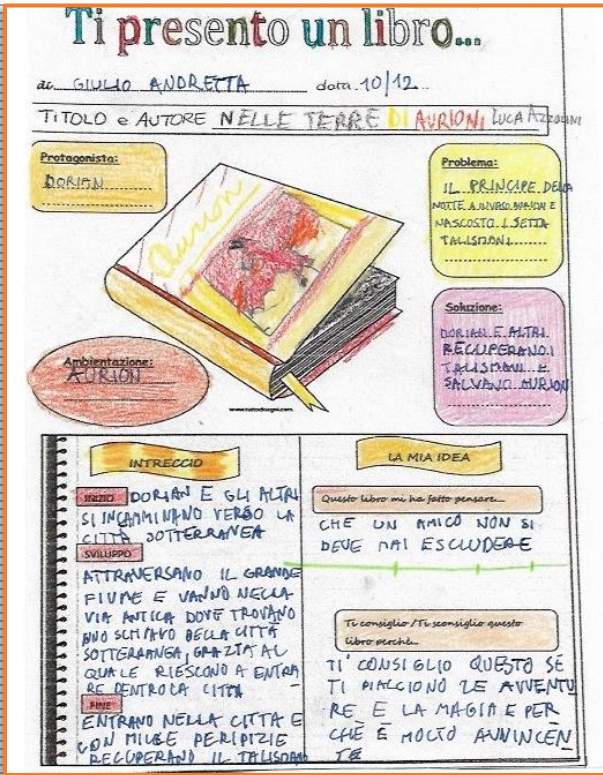 Ti presento un libro...
di GIULIO ANDRETTA data 10/12
TITOLO e AUTORE NELLE TERRE DI AURIONI LUCA AZZOLINI
Protagonista:
DORIAN
Problema:
IL PRINCIPE DELLA
NOTTE A INVASO AURION E
NASCOSTO I SETTA
TALISMANI
Aurion
Soluzione:
DORIAN E ALTRI
RECUPERANO I
TALISMANI E
SALVANO AURION
Ambientazione:
AURION
INTRECCIO
INIZIO DORIAN E GLI ALTRI
SI INCAMMINANO VERSO LA
CITTÀ SOTTERRANEA
SVILUPPO
ATTRAVERSANO IL GRANDE
FIUME E VANNO NELLA
VIA ANTICA DOVE TROVANO
UNO SCHIAVO DELLA CITTÀ
SOTTERRANEA, GRAZIA AL
QUALE RIESCONO A ENTRA
RE DENTRO LA CITTA
FINE
ENTRANO NELLA CITTA E
CON MILLE PERIPIZIE
RECUPERANO IL TALISMANO
LA MIA IDEA
Questo libro mi ha fatto pensare...
CHE UN AMICO NON SI
DEVE MAI ESCLUDERE
Ti consiglio / Ti sconsiglio questo
libro perchè...
TI CONSIGLIO QUESTO SE
TI PIACCIONO LE AVVENTU
RE E LA MAGIA E PER
CHÈ È MOLTO AVVINCEN
TE